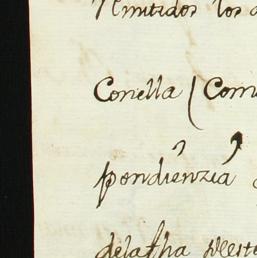 Remitidos los
Conella (Com
pondienzia
delafha